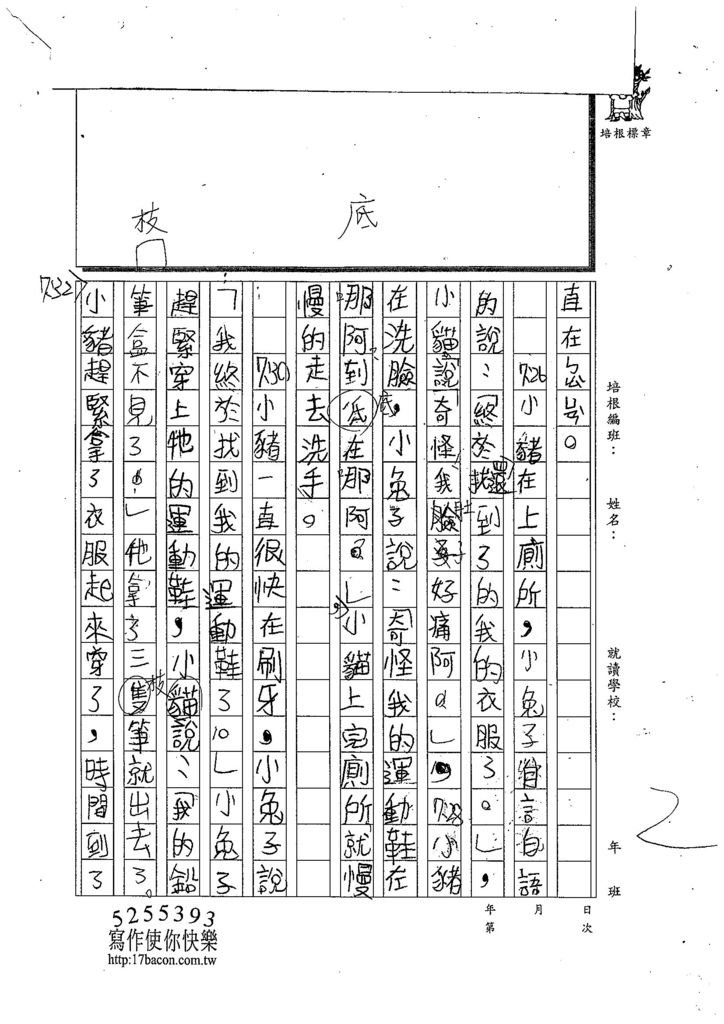 培根標章
底
枝
直在忽岁。
7:26小豬在上廁所,小兔子自言自語
的說:「終於找還到了的我的衣服了。」,
小貓說「奇怪我臉肚子好痛阿。」7:28小豬
在洗臉,小兔子說:「奇怪我的運動鞋在
那阿到底低在那阿?」小貓上完廁所就慢
慢的走去洗手。
7:30小豬一直很快在刷牙,小兔子說
:「我終於找到我的運動鞋了!」小兔子
趕緊穿上他的運動鞋,小貓說:「我的鉛
筆盒不見了!」他拿了三隻枝筆就出去了。
7:32小豬趕緊拿了衣服起來穿了,時間到了
培根編班: 姓名: 就讀學校: 年 班
年 月 日
第 次
5255393
寫作使你快樂
http:17bacon.com.tw